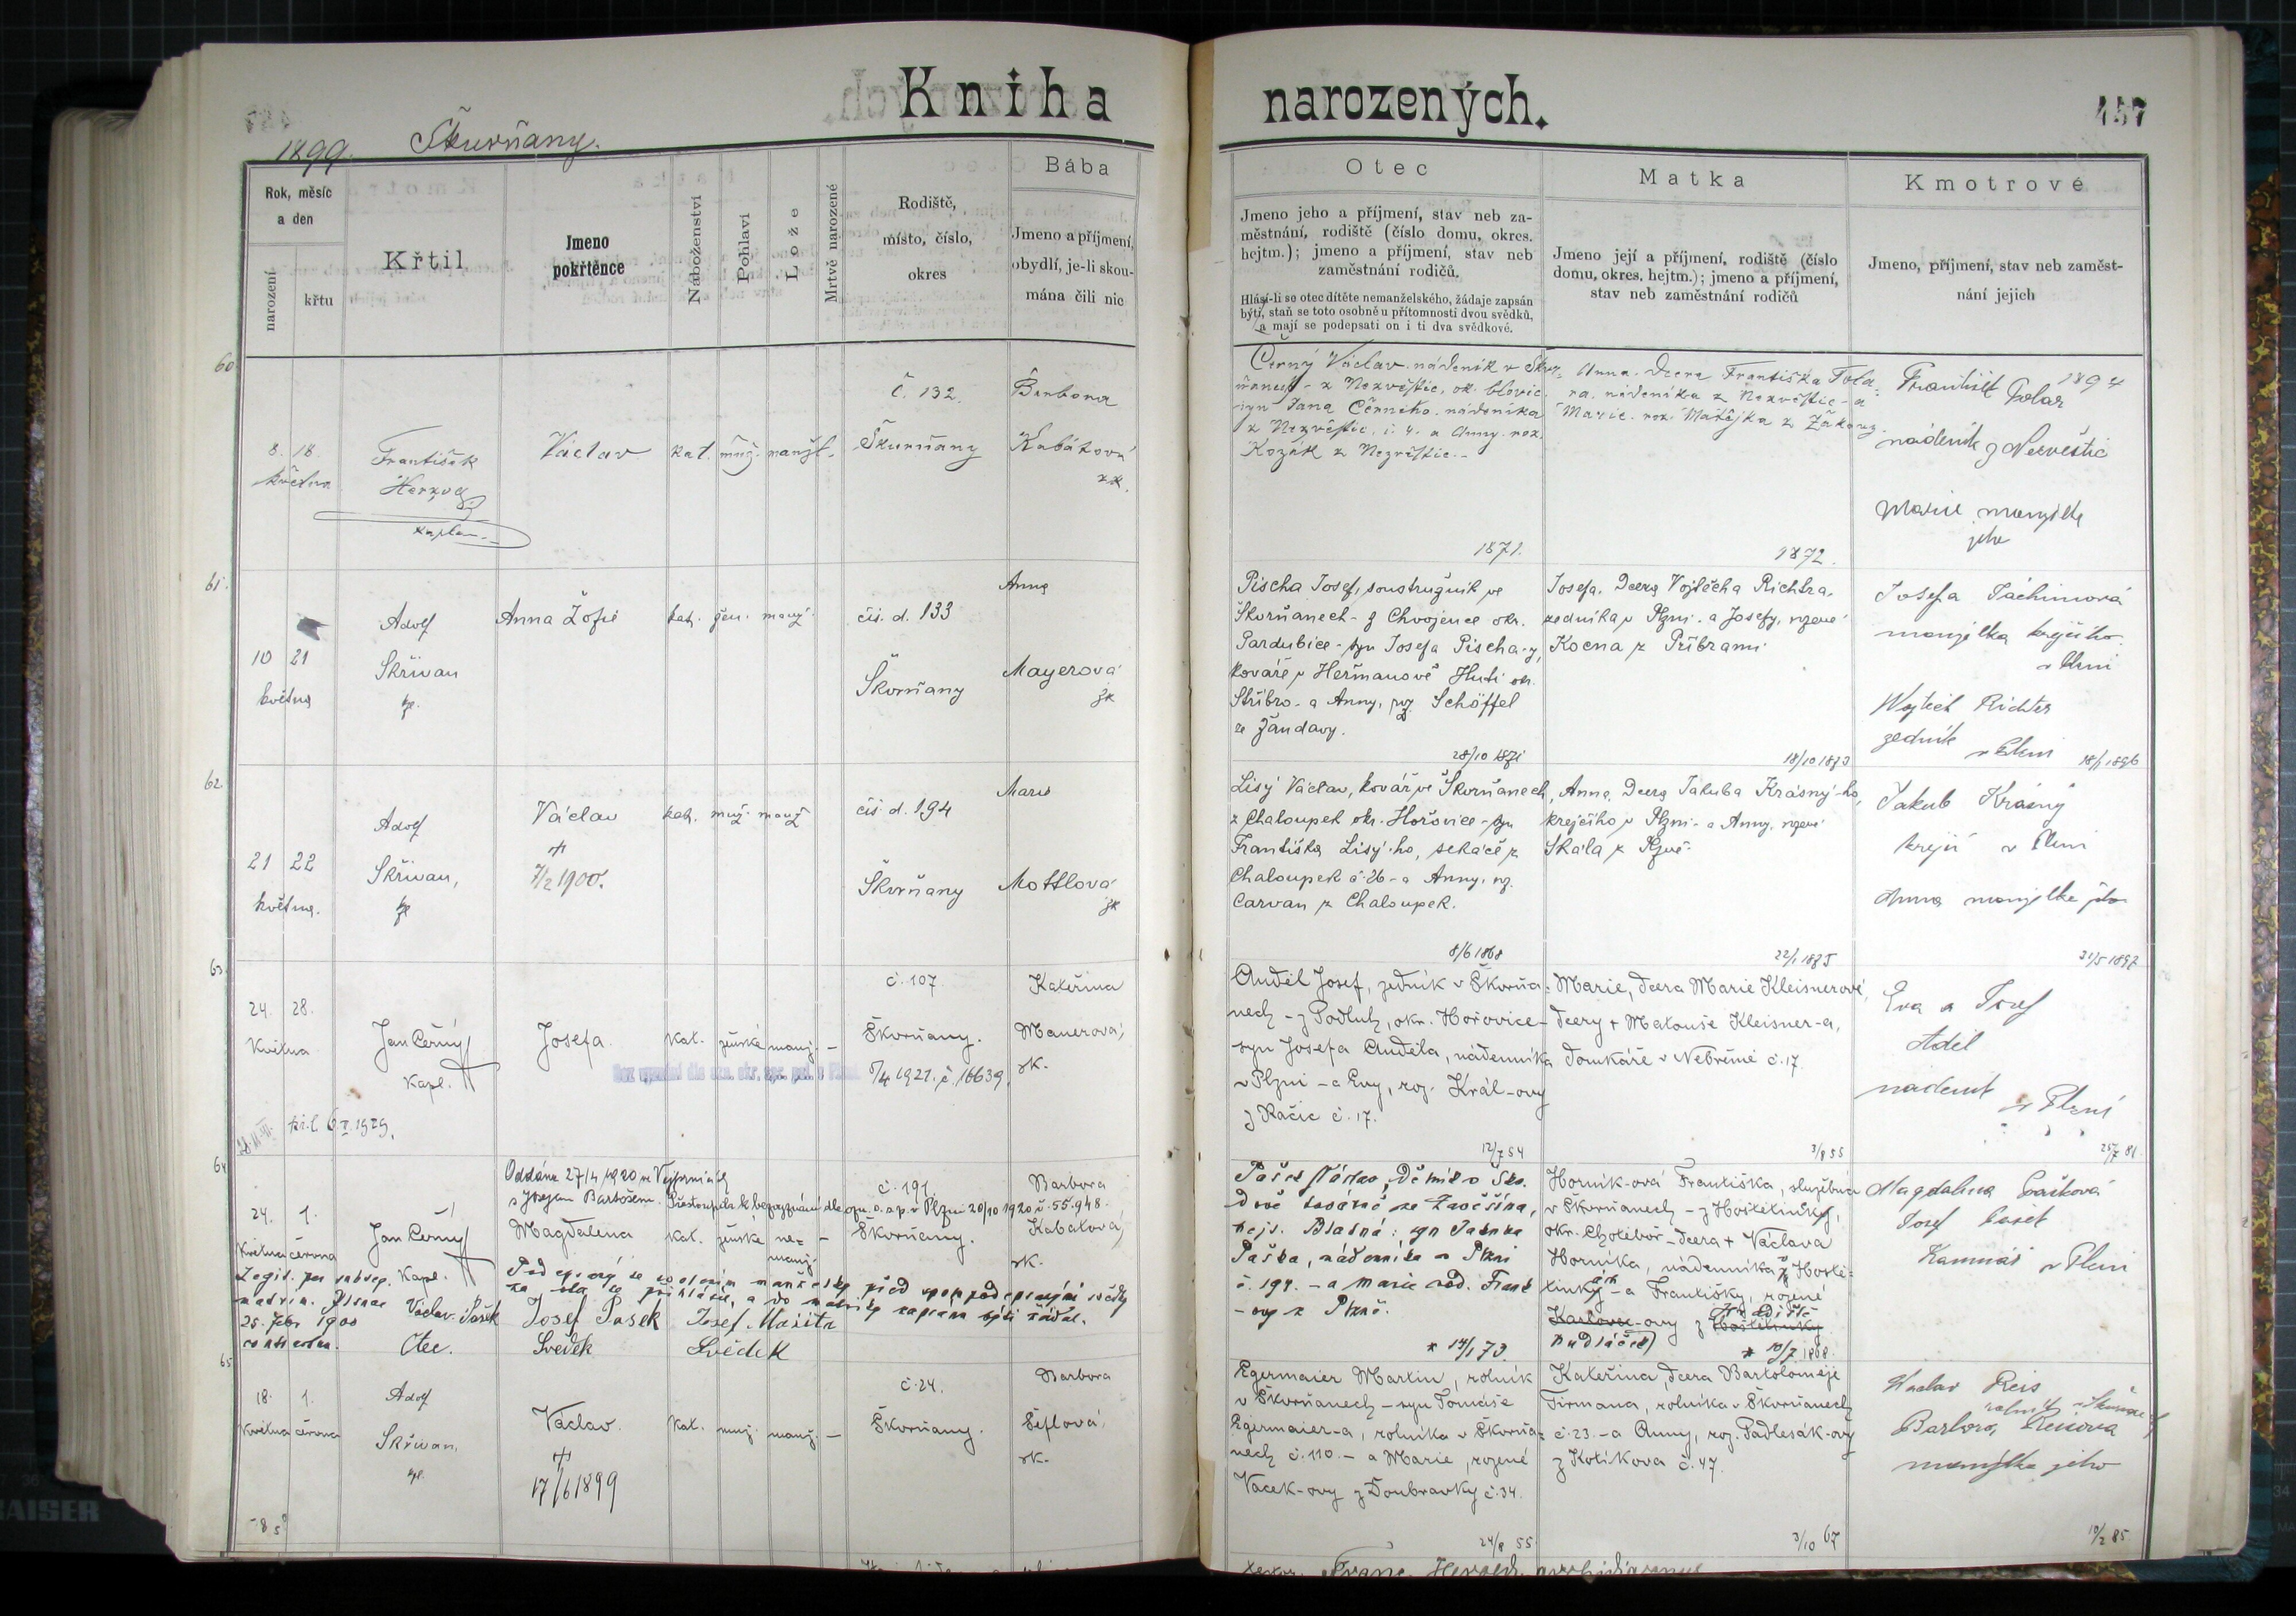 Kniha narozených.
457
1899. Škurňany.
Rok, měsíc a den
narození
křtu
Křtil
Jmeno pokřtěnce
Náboženství
Pohlaví
Lože
Mrtvě narozené
Rodiště, místo, číslo, okres
Bába
Jmeno a příjmení, obydlí, je-li skoumána čili nic
Otec
Jmeno jeho a příjmení, stav neb za-
městnání, rodiště (číslo domu, okres.
hejtm.); jmeno a příjmení, stav neb
zaměstnání rodičů.
Hlásí-li se otec dítěte nemanželského, žádaje zapsán
býti, staň se toto osobně u přítomnosti dvou svědků,
a mají se podepsati on i ti dva svědkové.
Matka
Jmeno její a příjmení, rodiště (číslo
domu, okres. hejtm.); jmeno a příjmení,
stav neb zaměstnání rodičů
Kmotrové
Jmeno, příjmení, stav neb zaměst-
nání jejich
60
8. 18.
května
František
Herzog
kaplan
Václav
kat. muž. manžl.
č. 132.
Škurňany
Barbora
Kabátová
zk.
Černý Václav nádeník v Škur-
ňanech - z Nezvěstic, ok. blovic.
syn Jana Černého, nádeníka
z Nezvěstic, č. 4. a Anny roz.
Kozák z Nezvěstic.-
1871.
Anna dcera Františka Tola-
ra, nádeníka z Nezvěstic - a
Marie roz. Matějka z Žákavy.
1872.
1894
František Tolar
nádeník z Nezvěstic
Marie manželka
jeho
61.
10 21
května
Adolf
Skřivan
kp.
Anna Žofie
kat. žen. manž.
čís. d. 133
Škorňany
Anna
Mayerová
zk
Pischa Josef, soustružník ve
Škorňanech - z Chvojence okr.
Pardubice - syn Josefa Pischa-y,
kováře v Heřmanově Huti okr.
Stříbro - a Anny, roz. Schöffel
ze Žandavy.
28/10 1871
Josefa, dcera Vojtěcha Richtra,
zedníka v Plzni - a Josefy, rozené
Kocna z Příbrami
18/10 1873
Josefa Táchimová
manželka krejčího
v Plzni
Wojtěch Richter
zedník v Plzni
18/1 1896
62.
21 22
května.
Adolf
Skřivan,
kp
Václav
†
7/2 1900.
kat. muž. manž
čís d. 194
Škorňany
Marie
Mottlová
zk
Lisý Václav, kovář ve Škorňanech,
z Chaloupek okr. Hořovice - syn
Františka Lisý-ho, sekáče z
Chaloupek č. 26 - a Anny, roz.
Carvan z Chaloupek.
8/6 1868
Anna, dcera Jakuba Krásný-ho,
krejčího v Plzni - a Anny, rozené
Skála z Plzně.
22/1 1875
Jakub Krásný
krejčí v Plzni
Anna manželka jeho
31/5 1897
63
24. 28.
Května
Jan Černý
Kapl.
Josefa.
kat. ženské manž. -
č. 107
Škorňany.
1921. č. 16639.
Kateřina
Mauerová,
zk.
Anděl Josef, zedník v Škorňa-
nech - z Podluh, okr. Hořovice -
syn Josefa Anděla, nádenníka
v Plzni - a Evy, roz. Král-ovy
z Račic č. 17.
12/7 54
Marie, dcera Marie Kleisnerové,
dcery + Matouše Kleisner-a,
domkáře v Nebřemi č. 17.
3/8 55
Eva a Josef
Aděl
nádeník
v Plzni
25/7 81
kř. l. 6. II. 1929.
64
24. 1.
Května června
Jan Černý
Kapl.
Oddána 27/4 1920 ve Vejprnicích
s Josefem Bartošem. Přestoupila k bezvyznání dle ozn. o. s. p. v Plzni 20/10 1920 č. 55.948.
Magdalena
kat. ženské ne-
manž. -
č. 191.
Škorňany.
Barbora
Kabátová,
zk.
Legit. per subseq.
matrim. Plsnae
25. febr 1900
contractum.
Pod epsaný se co otcem manželsky před spolupodepsanými svědky
ka dla se přihlásil, a do matriky zapsána býti žádal.
Václav Pašek
Otec.
Josef Pasek
Svědek
Josef Mašita
Svědek
Pašek Václav, dělník vŠko.
dově továrně ze Závěšína,
hejt. Blatná: syn Jakuba
Paška, nádenníka v Plzni
č. 194. - a Marie rod. Frank
-ovy z Plzně.
* 14/1 73.
Horník-ová Františka, služebná
v Škorňanech - z Hostětínky,
okr. Chotěboř - dcera + Václava
Horníka, nádenníka z Hostě-
tínky - a Františky, rozené
Karlovec-ovy z Hostětinky
Kudláček)
* 10/7 1868.
Magdalena Pašková
Josef Pašek
Kameník v Plzni
65
18. 1.
Května června
Adolf
Skřivan,
kp.
Václav.
†
17/6 1899
kat. muž. manž. -
č. 24.
Škorňany.
Barbora
Šiflová,
zk.
Egermaier Martin, rolník
v Škorňanech - syn Tomáše
Egermaier-a, rolníka v Škorňa-
nech č. 110. - a Marie, rozené
Vacek-ovy z Doubravky č. 34.
24/8 55
Kateřina, dcera Bartoloměje
Tirmana, rolníka v Škorňanech
č. 23. - a Anny, roz. Padlesák-ovy
z Kotíkova č. 47.
3/10 67
Václav Reis
rolník
Barbora Reisova
manželka jeho
10/2 85.